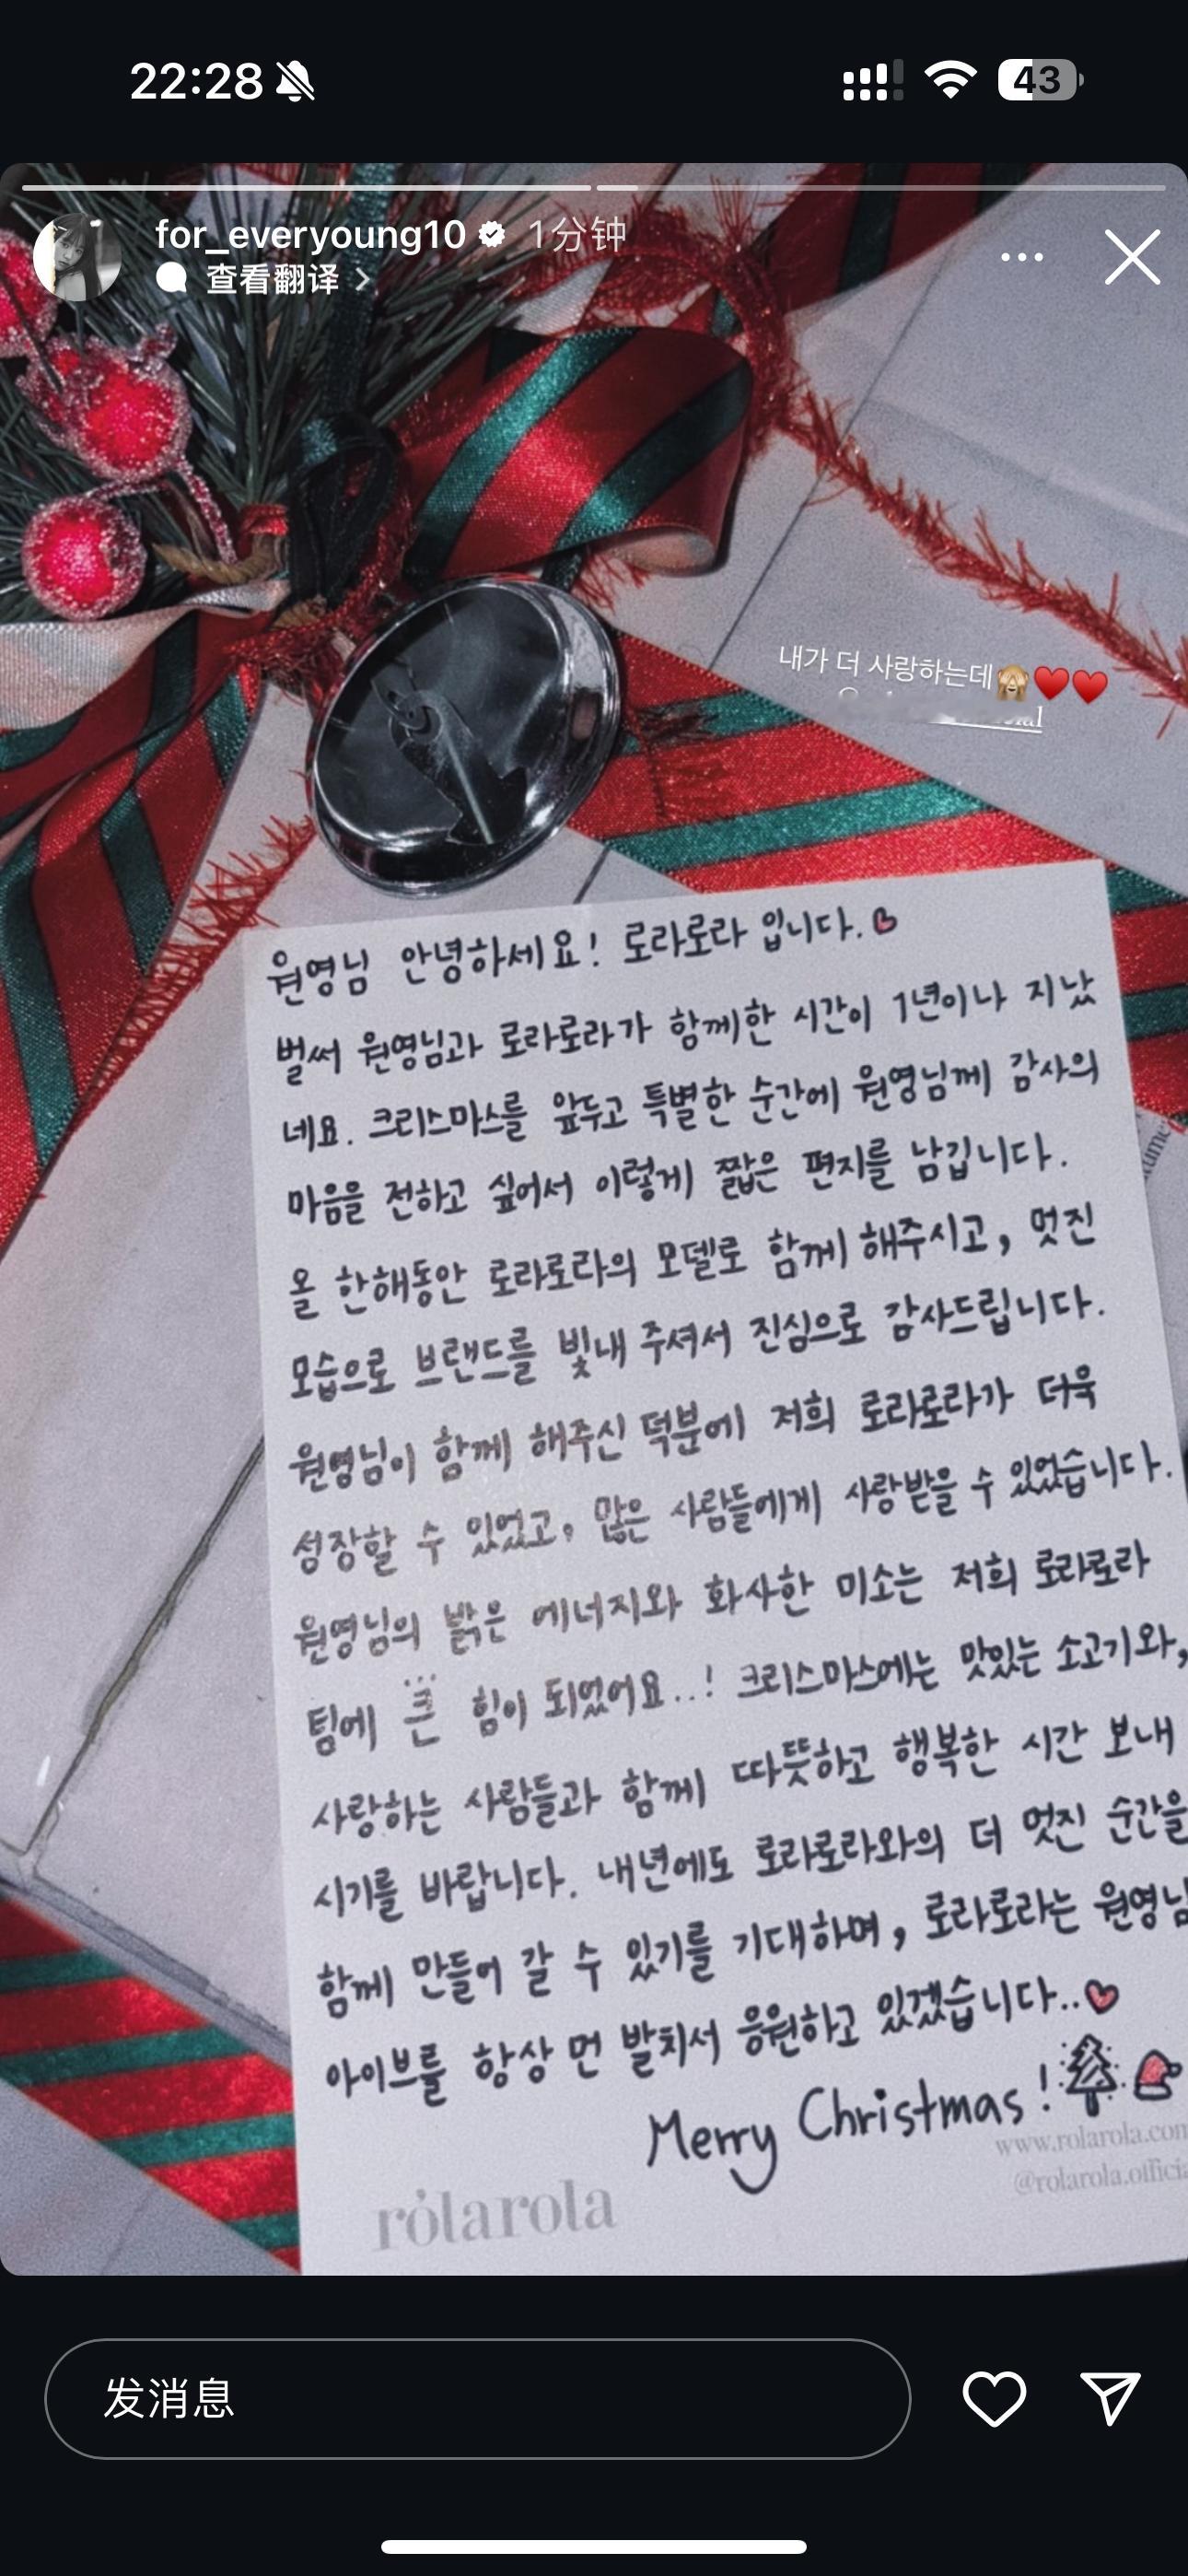 22:28
43
for_everyoung10 1分钟
查看翻译
내가 더 사랑하는데🙈❤️❤️
원영님 안녕하세요! 로라로라 입니다.
벌써 원영님과 로라로라가 함께한 시간이 1년이나 지났
네요. 크리스마스를 앞두고 특별한 순간에 원영님께 감사의
마음을 전하고 싶어서 이렇게 짧은 편지를 남깁니다.
올 한해동안 로라로라의 모델로 함께 해주시고, 멋진
모습으로 브랜드를 빛내 주셔서 진심으로 감사드립니다.
원영님이 함께 해주신 덕분에 저희 로라로라가 더욱
성장할 수 있었고, 많은 사람들에게 사랑받을 수 있었습니다.
원영님의 밝은 에너지와 화사한 미소는 저희 로라로라
팀에 큰 힘이 되었어요..! 크리스마스에는 맛있는 소고기와,
사랑하는 사람들과 함께 따뜻하고 행복한 시간 보내
시기를 바랍니다. 내년에도 로라로라와의 더 멋진 순간을
함께 만들어 갈 수 있기를 기대하며, 로라로라는 원영님
아이브를 항상 먼 발치서 응원하고 있겠습니다..
Merry Christmas!
www.rolarola.com
@rolarola.official
rolarola
发消息